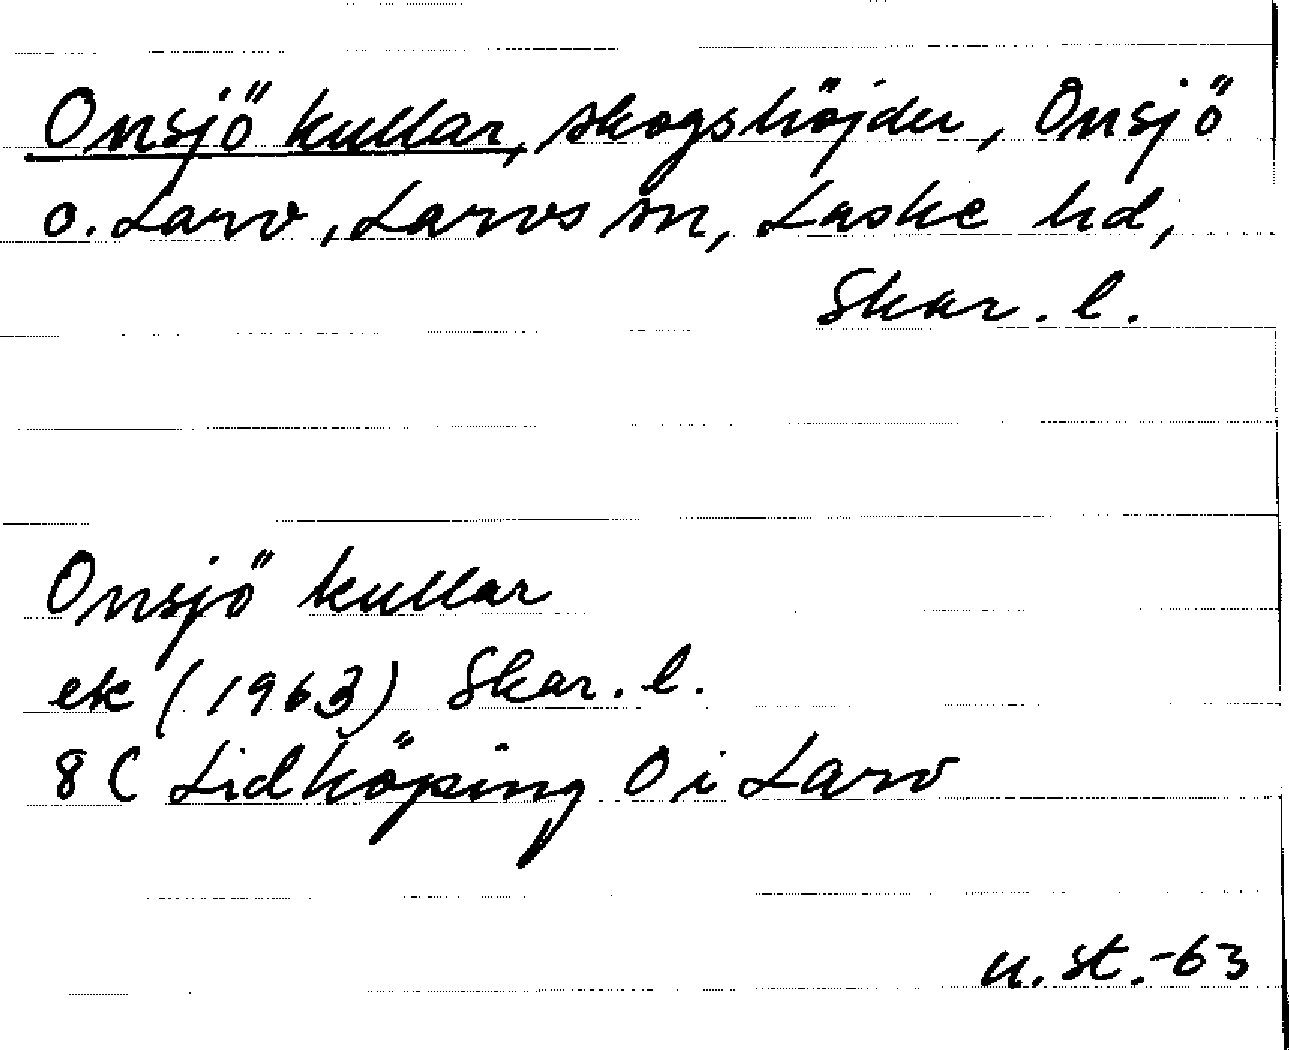 Onsjö kullar, skogshöjder, Onsjö
o. Larv, Larvs sn, Laske hd,
Skar. l.
Onsjö kullar
ek (1963) Skar. l.
8C Lidköping O i Larv
u. st. -63